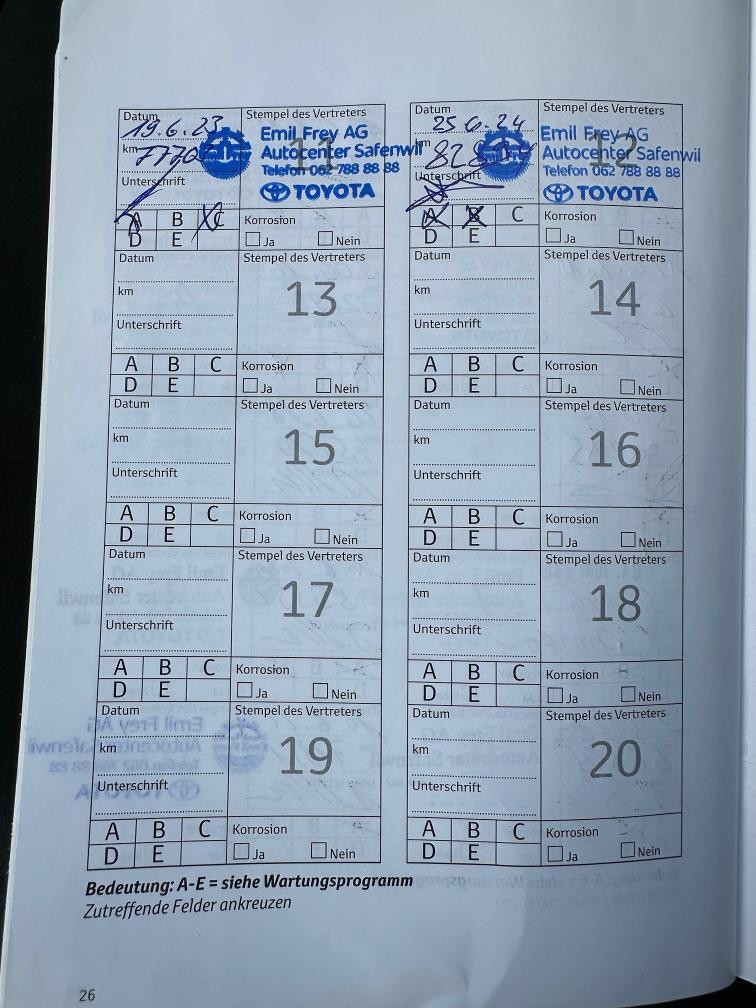 Datum
19.6.23
km
Unterschrift
Stempel des Vertreters
11
Emil Frey AG
Autocenter Safenwil
Telefon 062 788 88 88
TOYOTA
A B C
D E
Korrosion
Ja Nein
Datum
25 6.24
km
Unterschrift
Stempel des Vertreters
12
Emil Frey AG
Autocenter Safenwil
Telefon 062 788 88 88
TOYOTA
A B C
D E
Korrosion
Ja Nein
Datum
km
Unterschrift
Stempel des Vertreters
13
A B C
D E
Korrosion
Ja Nein
Datum
km
Unterschrift
Stempel des Vertreters
14
A B C
D E
Korrosion
Ja Nein
Datum
km
Unterschrift
Stempel des Vertreters
15
A B C
D E
Korrosion
Ja Nein
Datum
km
Unterschrift
Stempel des Vertreters
16
A B C
D E
Korrosion
Ja Nein
Datum
km
Unterschrift
Stempel des Vertreters
17
A B C
D E
Korrosion
Ja Nein
Datum
km
Unterschrift
Stempel des Vertreters
18
A B C
D E
Korrosion
Ja Nein
Datum
km
Unterschrift
Stempel des Vertreters
19
A B C
D E
Korrosion
Ja Nein
Datum
km
Unterschrift
Stempel des Vertreters
20
A B C
D E
Korrosion
Ja Nein
Bedeutung: A-E = siehe Wartungsprogramm
Zutreffende Felder ankreuzen
26